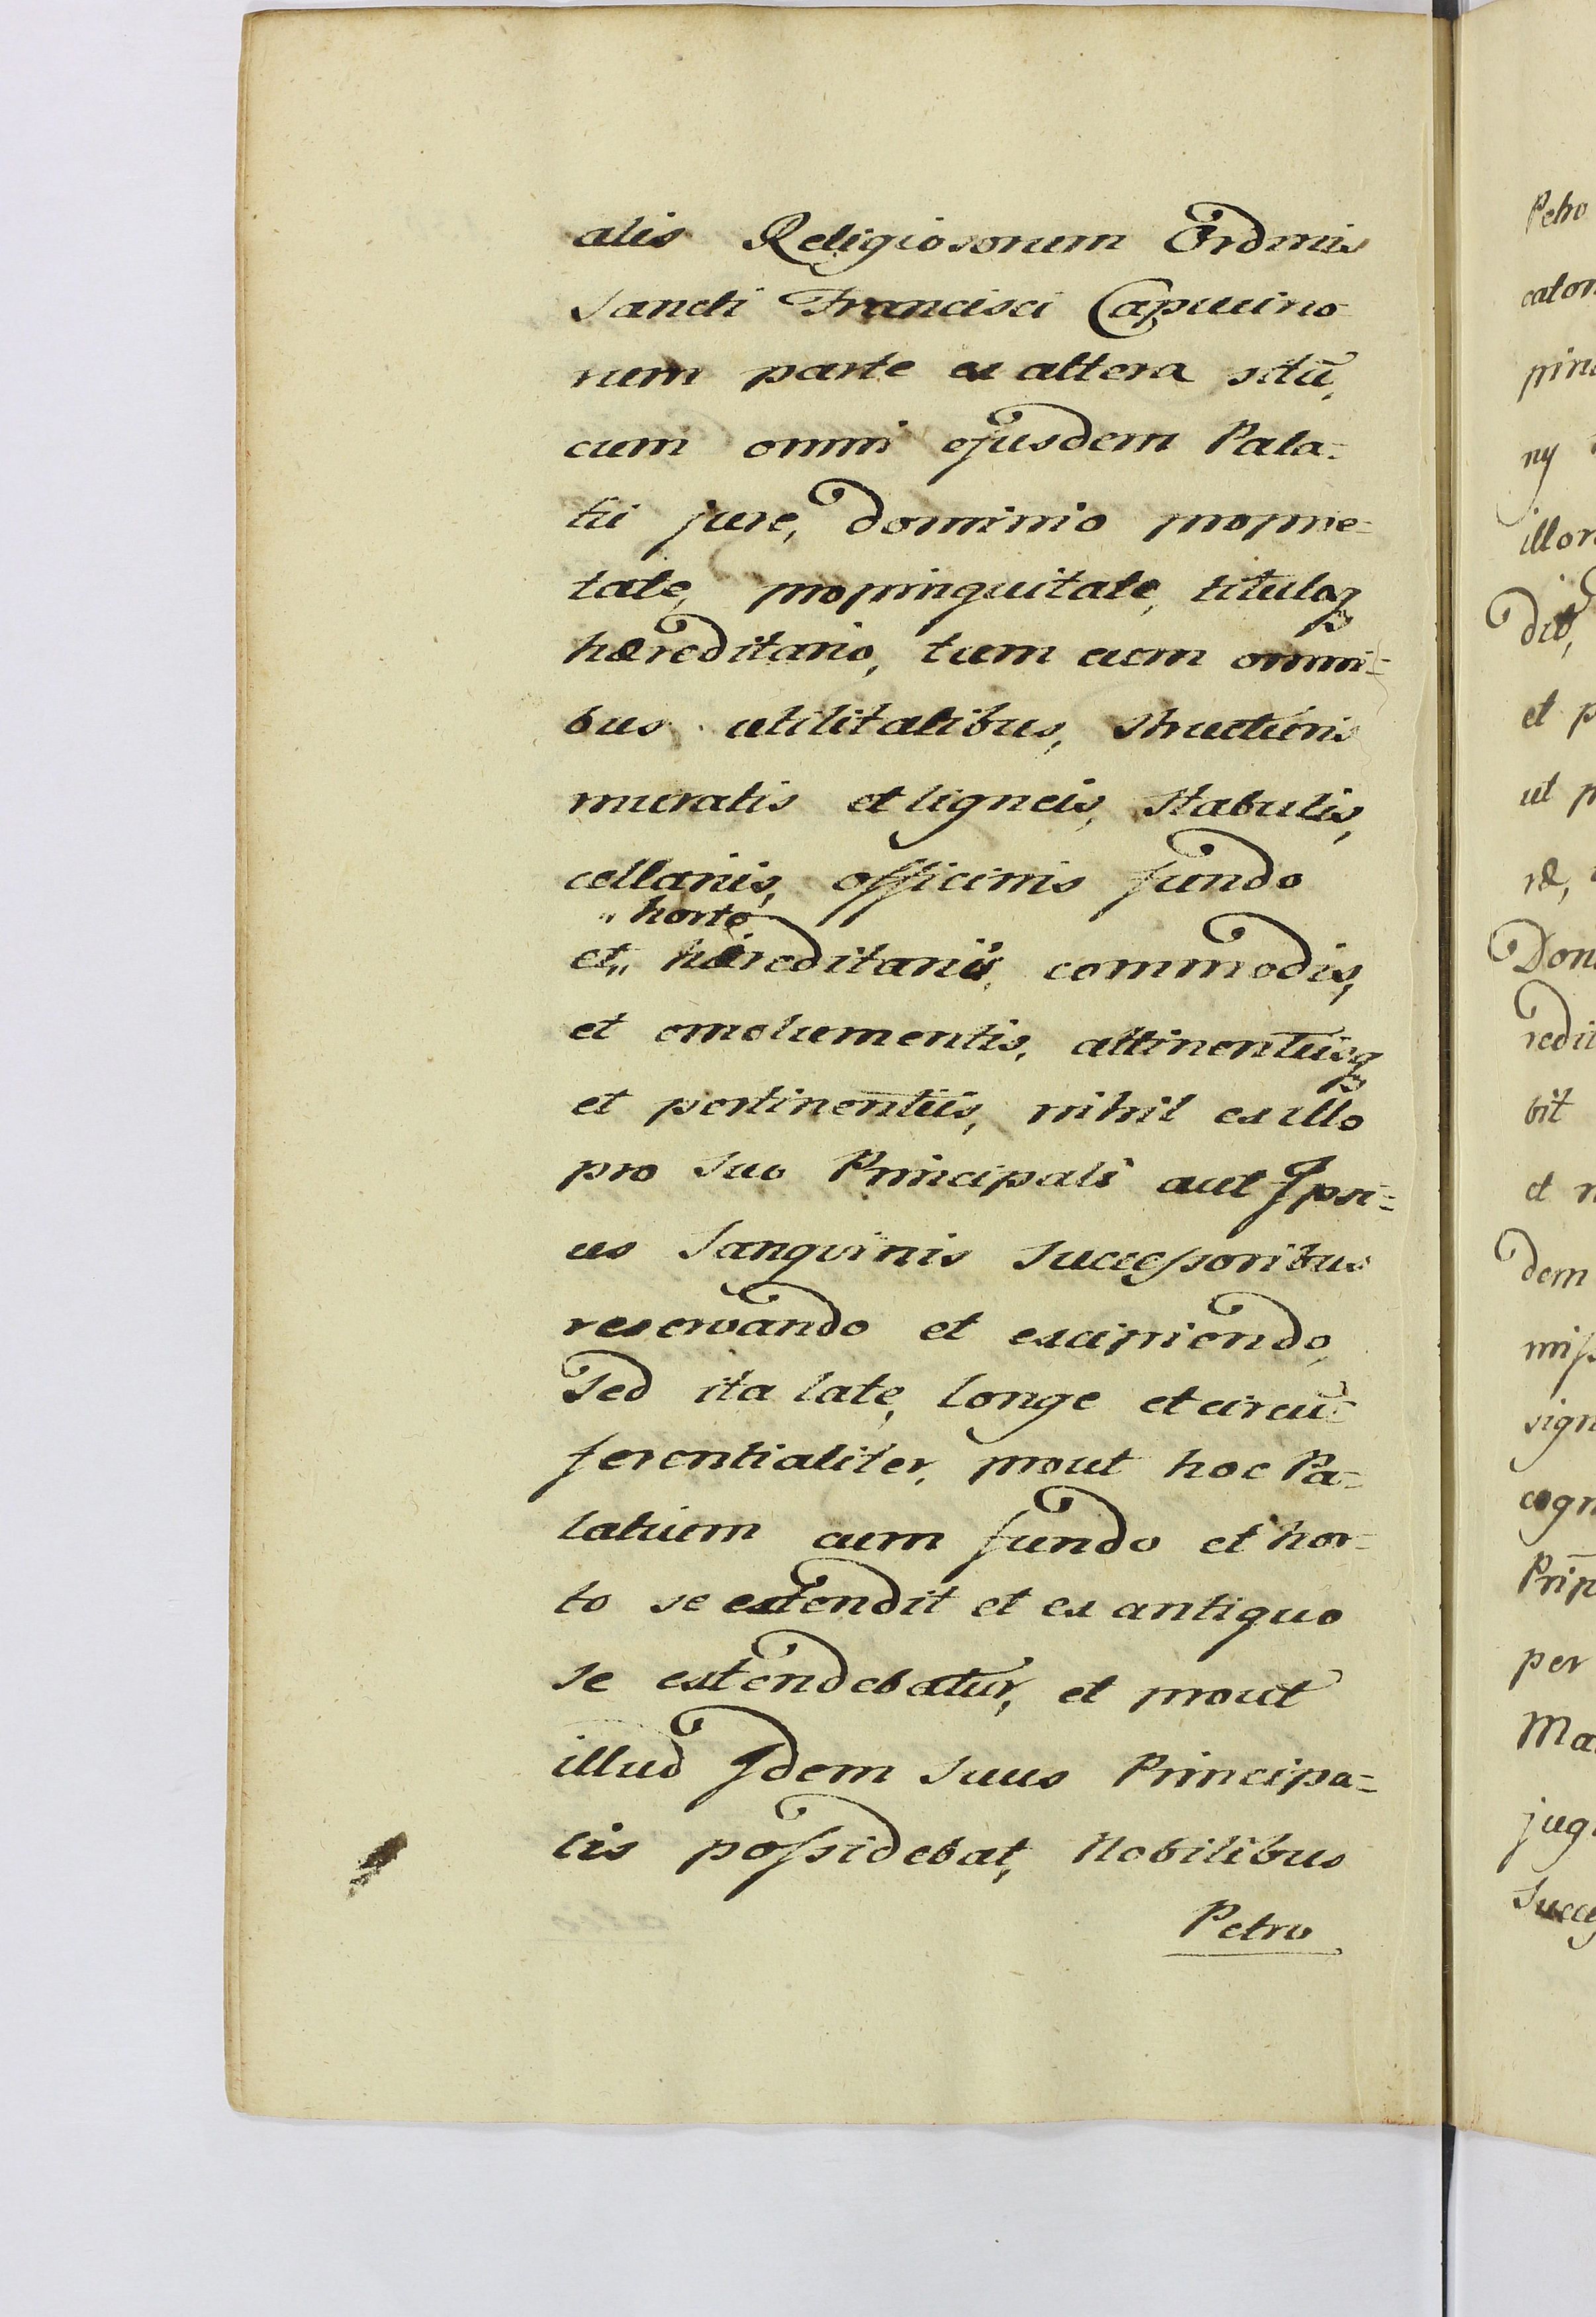 alis Religiosorum Ordinis
Sancti Francisci Capucino
rum parte ex altera sitū,
cum omni ejusdem Pala=
tii jure, dominio proprie=
tate, propinquitate, tituloq₃
hæreditario, tum cum omni=
bus utilitatibus, structuris
muratis et ligneis, stabulis,
cellariis, officinis fundo
„ horto
et„ hæreditariis, commodis,
et emolumentis, attinentiisq₃
et pertinentiis, nihil ex illo
pro Suo Principali aut Ipsi=
us Sanguinis Successoribus
reservando et excipiendo,
Sed ita late, longe et circū=
ferentialiter, prout hoc Pa=
latium cum fundo et hor=
to se extendit et ex antiquo
se extendebatur, et prout
illud Idem Suus Principa=
lis possidebat, Nobilibus
Petro
Petro
ny
et p
ut p
ræ,
bit
et
dem
per